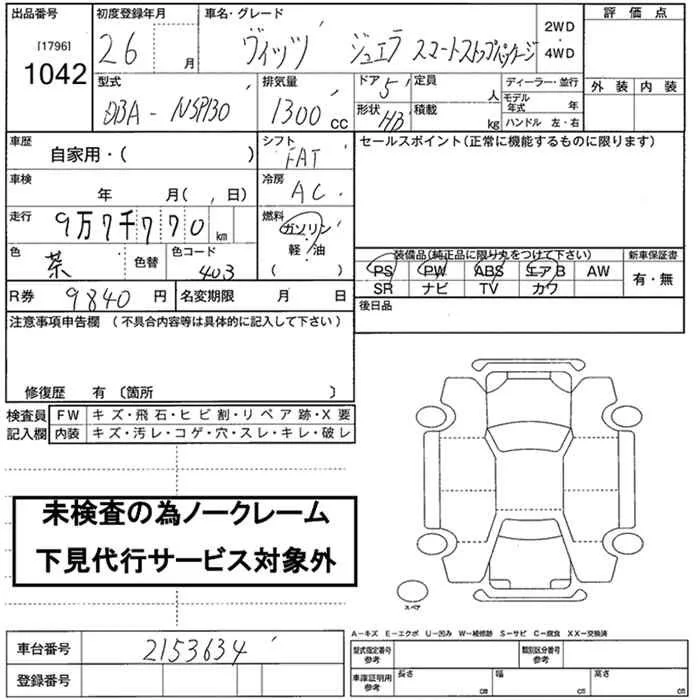 出品番号 初度登録年月 車名・グレード 2WD・4WD 評価点
[1796]
1042 26 月 ヴィッツ ジュエラ スマートストップパッケージ
外装 内装
型式 排気量 ドア 5 定員 人 ディーラー・並行
DBA-NSP130 1300 cc 形状 HB 積載 kg モデル年式 年
ハンドル 左・右
車歴 自家用・( ) シフト FAT セールスポイント(正常に機能するものに限ります)
車検 年 月( 、 日) 冷房 AC
走行 9万7千770 km 燃料 ガソリン 軽・油 ( )
色 茶 色替 色コード 4U3
装備品(純正品に限り丸をつけて下さい) 新車保証書
PS PW ABS エアB AW 有・無
SR ナビ TV カワ
R券 9840 円 名変期限 月 日 後日品
注意事項申告欄 (不具合内容等は具体的に記入して下さい)
修復歴 有 〔箇所 〕
検査員 FW キズ・飛石・ヒビ割・リペア跡・X要
記入欄 内装 キズ・汚レ・コゲ・穴・スレ・キレ・破レ
未検査の為ノークレーム
下見代行サービス対象外
スペア
A−キズ E−エクボ U−凹み W−補修跡 S−サビ C−腐食 XX−交換済
車台番号 2153634
登録番号
型式指定番号 参考 類別区分番号 参考
車庫証明用 参考 長さ cm 幅 cm 高さ cm